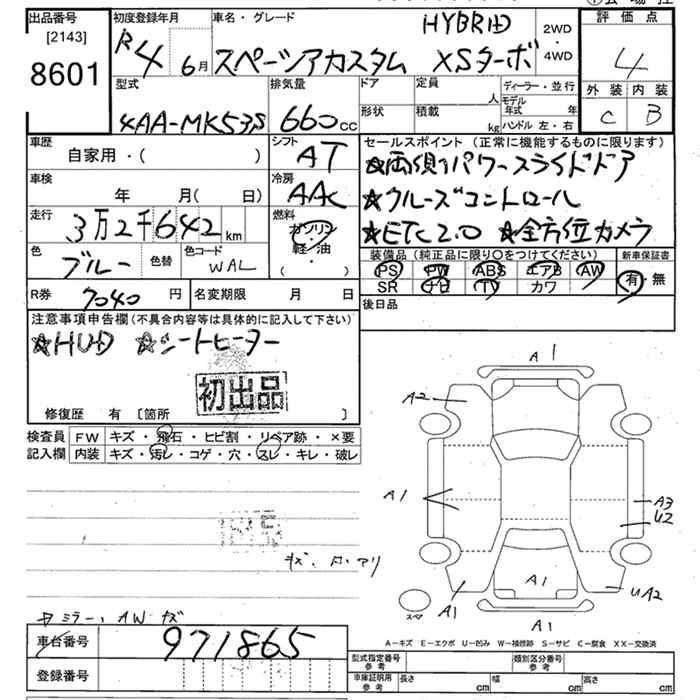 出品番号 初度登録年月 車名・グレード HYBRID 2WD・4WD 評価点
[2143] R4 6月 スペーシアカスタム XSターボ 4
8601 型式 排気量 ドア 定員 人 ディーラー・並行 外装 内装
4AA-MK53S 660cc 形状 積載 kg モデル年式 年 ハンドル 左・右 C B
車歴 シフト セールスポイント (正常に機能するものに限ります)
自家用・( ) AT ☆両側パワースライドドア
車検 冷房 ☆クルーズコントロール
年 月( 日) AAC ☆ETC2.0 ☆全方位カメラ
走行 3万2千642km 燃料 ガソリン 軽・油 ・( )
装備品 (純正品に限り○をつけてください) 新車保証書
色 ブルー 色替 色コード WAL PS PW ABS エアB AW 有・無
SR ナビ TV カワ
R券 7040 円 名変期限 月 日 後日品
注意事項申告欄(不具合内容等は具体的に記入して下さい)
☆HUD ☆シートヒーター
初出品
修復歴 有 [箇所 ]
検査員 FW キズ・飛石・ヒビ割・リペア跡・×要
記入欄 内装 キズ・汚レ・コゲ・穴・スレ・キレ・破レ
A1
A2
A1 A3
U2
A1 A1 UA2
スペア A1
ミラー、AW キズ
A-キズ E-エクボ U-凹み W-補修跡 S-サビ C-腐食 XX-交換済
車台番号 971865 型式指定番号 参考 類別区分番号 参考
登録番号 車庫証明用 参考 長さ cm 幅 cm 高さ cm